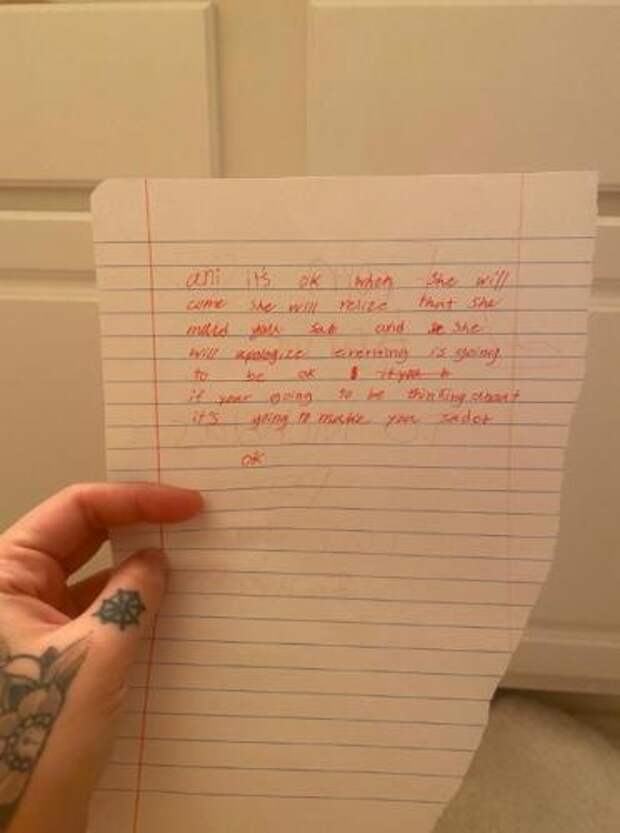 ani it's ok when she will
come she will relize that she
maed you sab and she
will apologize everenting is going
to be ok
if your going to be thinking about
it's going to make you sador
ok